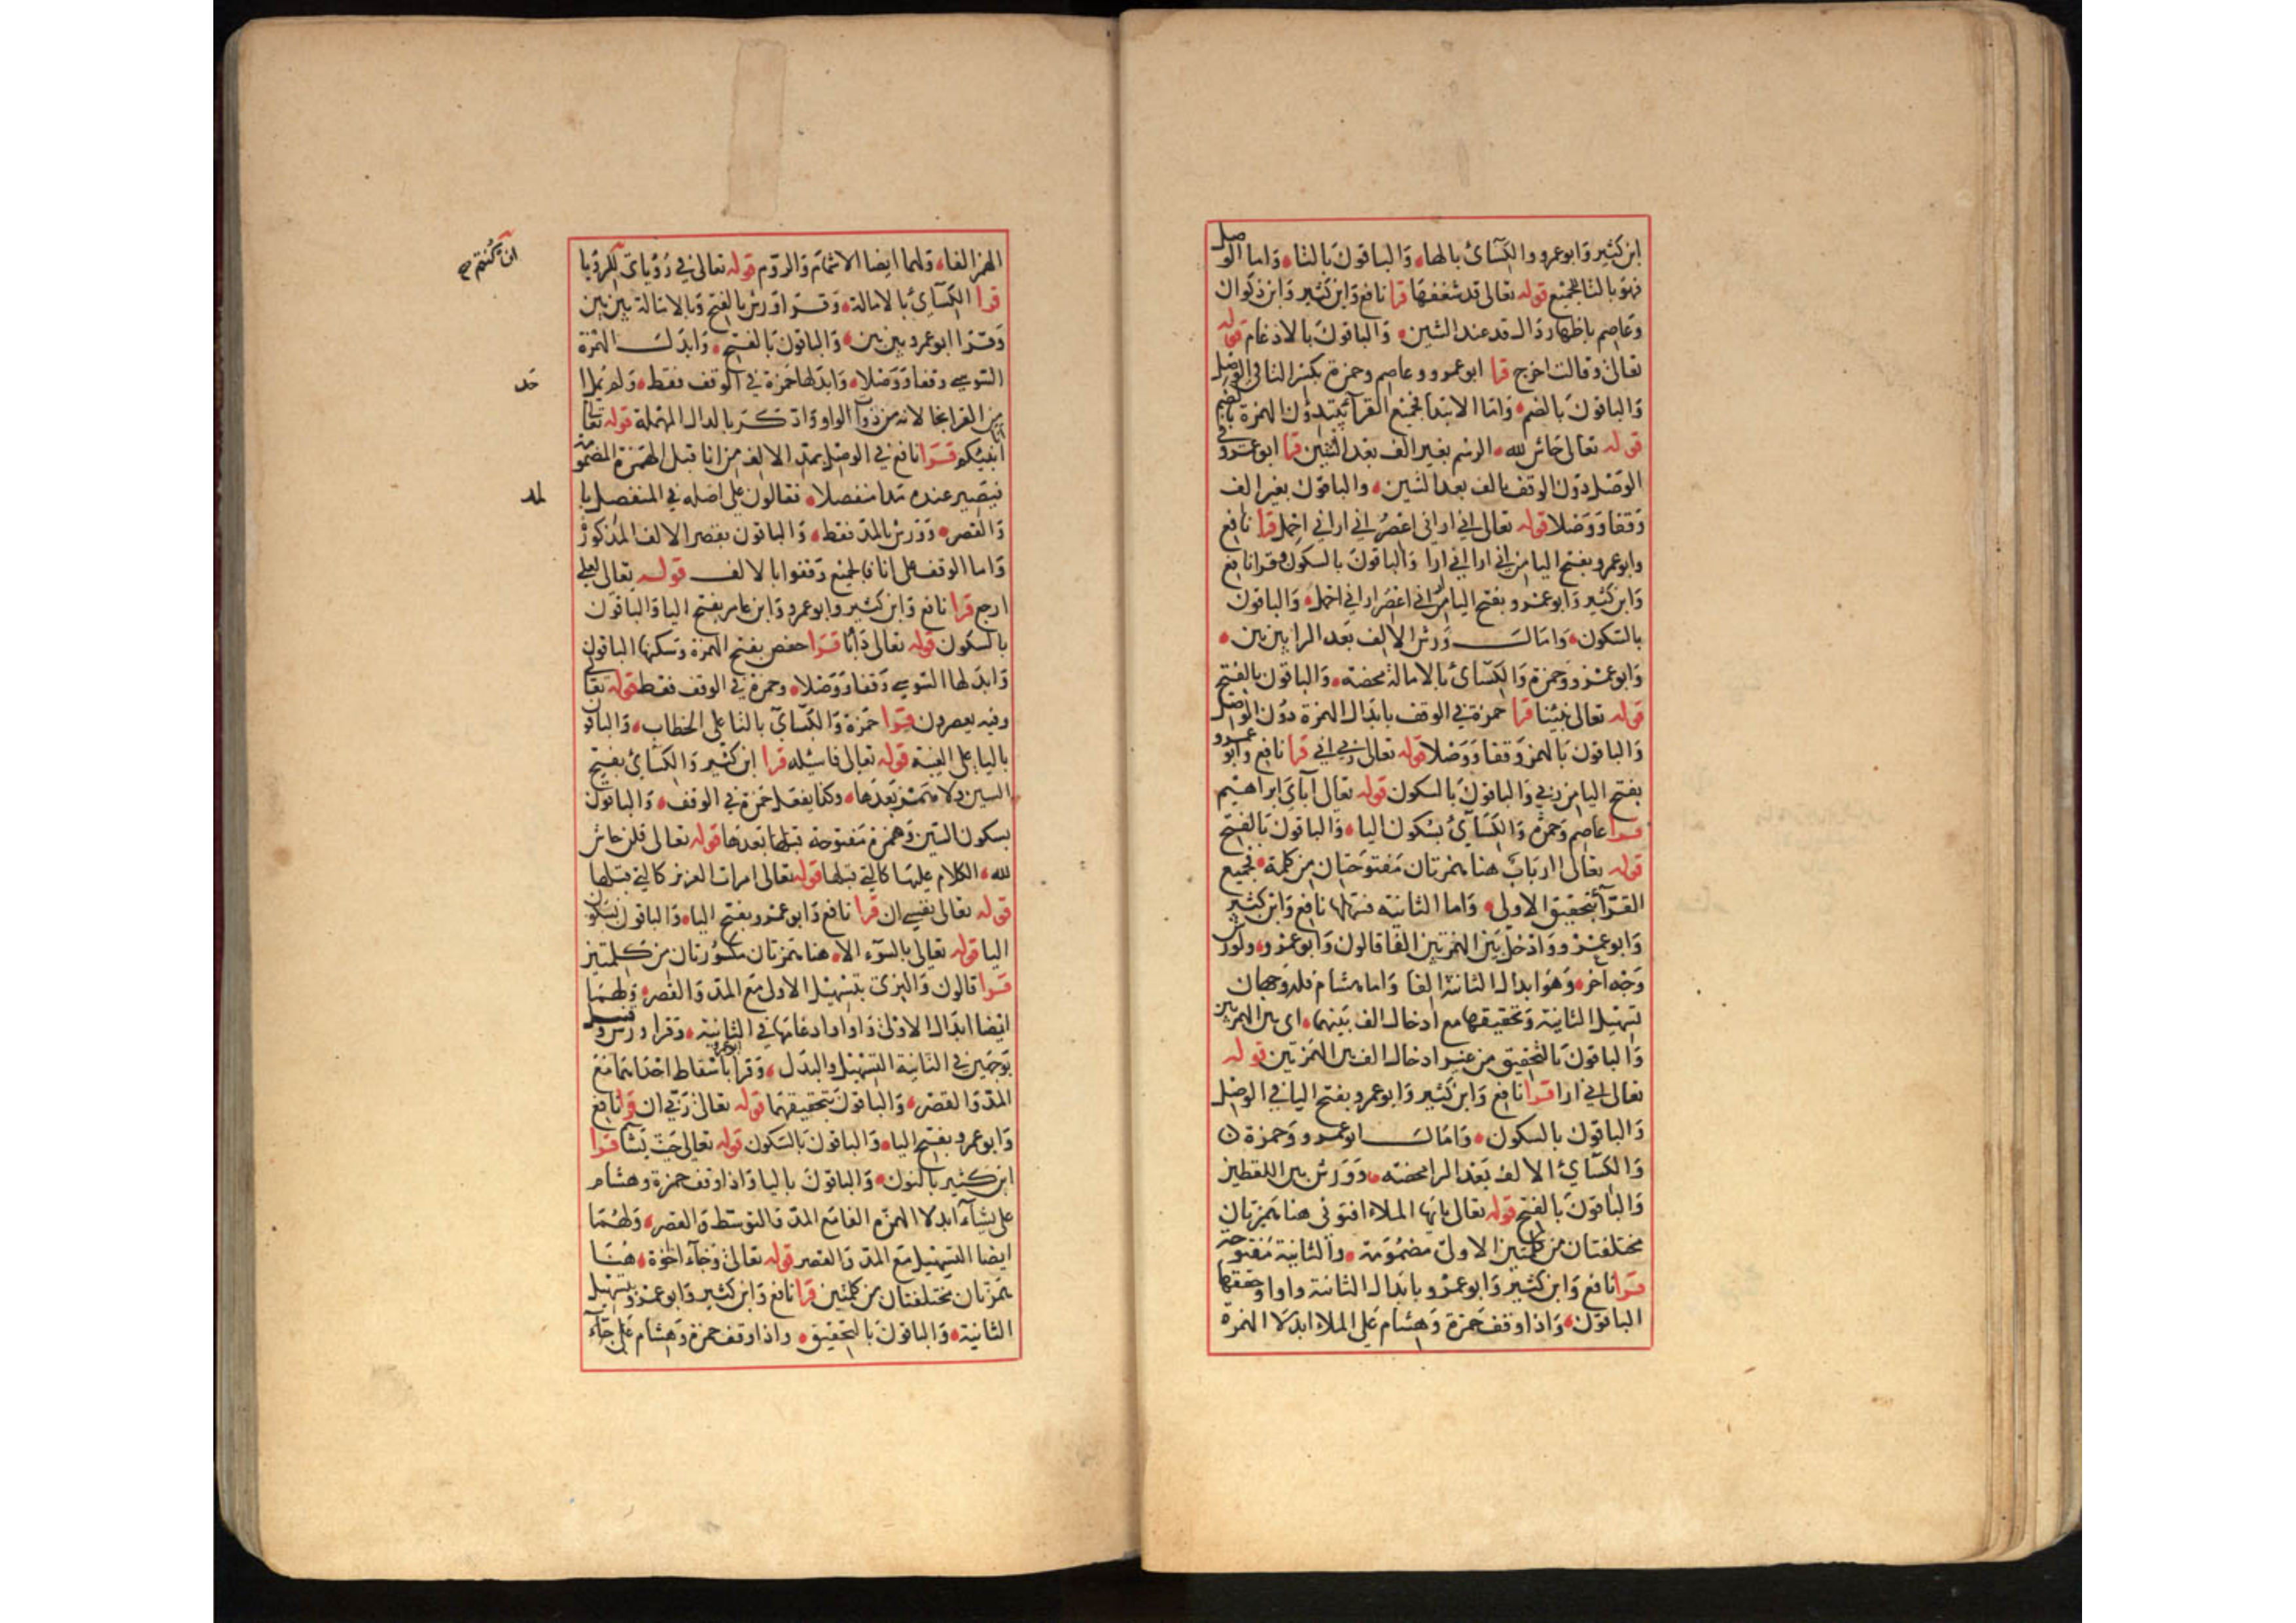 ابن كثير وابوعمرو والكسائ بالها، والباقون بالتا، واما الوصل
فهو بالتا للجميع قوله تعالى قد شغفها قرا نافع وابن كثير وابن ذكوان
وعاصم باظهار دال قد عند الشين، والباقون بالادغام قوله
تعالى وقالت اخرج قرا ابو عمرو وعاصم وحمزة بكسر التا في الوصل
والباقون بالضم، واما الابتدا فجميع القرآ يبتدؤن الهمزة بالضم
قوله تعالى حاش لله، الرسم بغير الف بعد الشين قرا ابو عمرو في
الوصل دون الوقف بالف بعد الشين، والباقون بغير الف
وقفا ووصلا قوله تعالى اني اراني اعصر اني اراني احمل قرا نافع
وابو عمرو بفتح اليا من اني ارا اني ارا والباقون بالسكون وقرا نافع
وابن كثير وابو عمرو بفتح اليا من اراني اعصر اراني احمل، والباقون
بالسكون، وامال ورش الالف بعد الرا بين بين،
وابو عمرو وحمزة والكسائ بالامالة محضة، والباقون بالفتح
قوله تعالى نبئنا قرا حمزة في الوقف بابدال الهمزة دون الوصل
والباقون بالهمز وقفا ووصلا قوله تعالى ربي اني قرا نافع وابو عمرو
بفتح اليا من ربي والباقون بالسكون قوله تعالى آباي ابراهيم
قرا عاصم وحمزة والكسآئ بسكون اليا، والباقون بالفتح
قوله تعالى اارباب هنا همزتان مفتوحتان من كلمة، فجميع
القرآ بتحقيق الاولى، واما الثانية فسهلها نافع وابن كثير
وابو عمرو وادخل بين الهمزتين الفا قالون وابو عمرو، ولورش
وجه آخر، وهو ابدال الثانية الفا واما هشام فله وجهان
تسهيل الثانية وتحقيقها مع ادخال الف بينهما، اي بين الهمزتين
والباقون بالتحقيق من غير ادخال الف بين الهمزتين قوله
تعالى اني ارا قرا نافع وابن كثير وابو عمرو بفتح اليا في الوصل
والباقون بالسكون، وامال ابو عمرو وحمزة
والكسآئ الالف بعد الرا محضة، وورش بين اللفظين
والباقون بالفتح قوله تعالى يايها الملا افتوني هنا همزتان
مختلفتان من كلمتين الاولى مضمومة، والثانية مفتوحة
قرا نافع وابن كثير وابو عمرو بابدال الثانية واوا وحققها
الباقون، واذا وقف حمزة وهشام على الملا ابدلا الهمزة
الهمز الفا، ولهما ايضا الاشمام والروم قوله تعالى في رؤياي للرؤيا
قرا الكسآئ بالامالة، وقرا ورش بالفتح وبالامالة بين بين
وقرا ابو عمرو بين بين، والباقون بالفتح، وابدل الهمزة
السوسي وقفا ووصلا، وابدلها حمزة في الوقف فقط، ولم يمل
من القرا نجا لانه من ذوا الواو وادكر بالدال المهملة قوله تعالى
انا انبئكم قرا نافع في الوصل بمد الالف من انا قبل الهمزة المضمومة
فيصير عنده مدا منفصلا، فقالون على اصله في المنفصل بالمد
والقصر، وورش بالمد فقط، والباقون بقصر الالف المذكور
واما الوقف على انا فالجميع وقفوا بالالف قوله تعالى لعلي
ارجع قرا نافع وابن كثير وابو عمرو وابن عامر بفتح اليا والباقون
بالسكون قوله تعالى دأبا قرا حفص بفتح الهمزة وسكنها الباقون
وابدلها السوسي وقفا ووصلا، وحمزة في الوقف فقط قوله تعالى
وفيه يعصرون قرا حمزة والكسآئ بالتا على الخطاب، والباقون
باليا على الغيبة قوله تعالى فاسئله قرا ابن كثير والكسائ بفتح
السين ولا همز بعدها، وكذا يفعل حمزة في الوقف، والباقون
بسكون السين وهمزة مفتوحة بعدها قوله تعالى قلن حاش
لله، الكلام عليها كالتي قبلها قوله تعالى امرات العزيز كالتي قبلها
قوله تعالى نفسي ان قرا نافع وابو عمرو بفتح اليا، والباقون بسكون
اليا قوله تعالى بالسوء الا، هنا همزتان مكسورتان من كلمتين
قرا قالون والبزى بتسهيل الاولى مع المد والقصر، ولهما
ايضا ابدال الاولى واوا وادغامها في الثانية، وقرا ورش وقنبل
بوجهين في الثانية التسهيل والبدل، وقرا ابو عمرو باسقاط احداهما مع
المد والقصر، والباقون بتحقيقهما قوله تعالى ربي ان قرا نافع
وابو عمرو بفتح اليا، والباقون بالسكون قوله تعالى حيث يشآ قرا
ابن كثير بالنون، والباقون باليا واذا وقف حمزة وهشام
على يشآء ابدلا الهمزة الفا مع المد والتوسط والقصر، ولهما
ايضا التسهيل مع المد والقصر قوله تعالى وجآء اخوة، هنا
همزتان مختلفتان من كلمتين قرا نافع وابن كثير وابو عمرو بتسهيل
الثانية، والباقون بالتحقيق، واذا وقف حمزة وهشام على جآء
ان كنتم